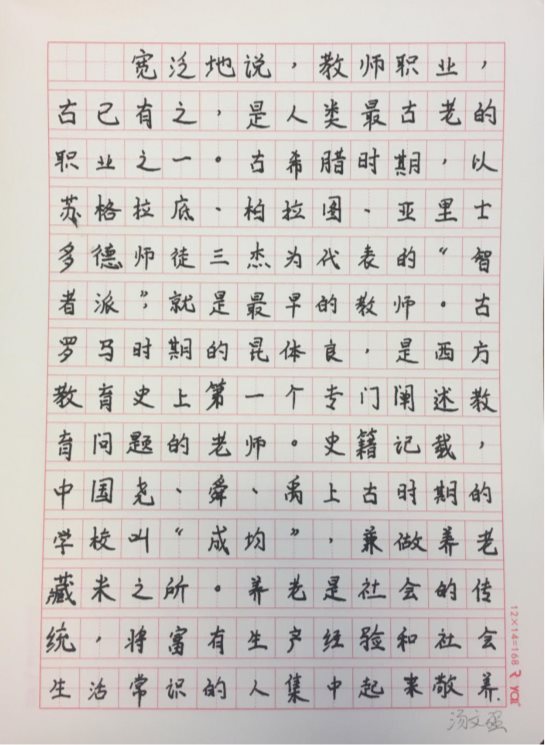 宽泛地说，教师职业，
古已有之，是人类最古老的
职业之一。古希腊时期，以
苏格拉底、柏拉图、亚里士
多德师徒三杰为代表的“智
者派”，就是最早的教师。古
罗马时期的昆体良，是西方
教育史上第一个专门阐述教
育问题的老师。史籍记载，
中国尧、舜、禹上古时期的
学校叫“成均”，兼做养老
藏米之所。养老是社会的传
统，将富有生产经验和社会
生活常识的人集中起来敬养
12×14=168
汤文盈